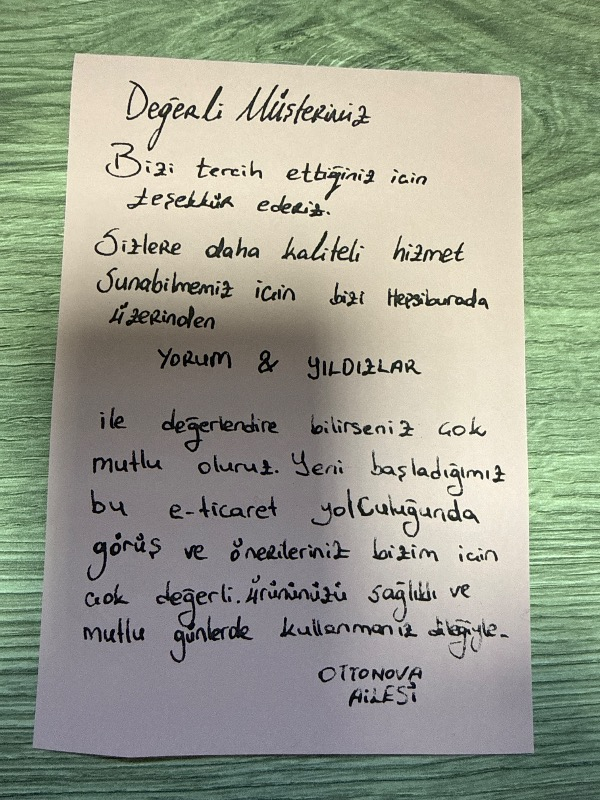 Değerli Müşterimiz
Bizi tercih ettiğiniz için
teşekkür ederiz.
Sizlere daha kaliteli hizmet
sunabilmemiz için bizi Hepsiburada
üzerinden
YORUM & YILDIZLAR
ile değerlendire bilirseniz çok
mutlu oluruz. Yeni başladığımız
bu e-ticaret yolculuğunda
görüş ve önerileriniz bizim için
çok değerli. Ürününüzü sağlıklı ve
mutlu günlerde kullanmanız dileğiyle.
OTTONOVA
AİLESİ